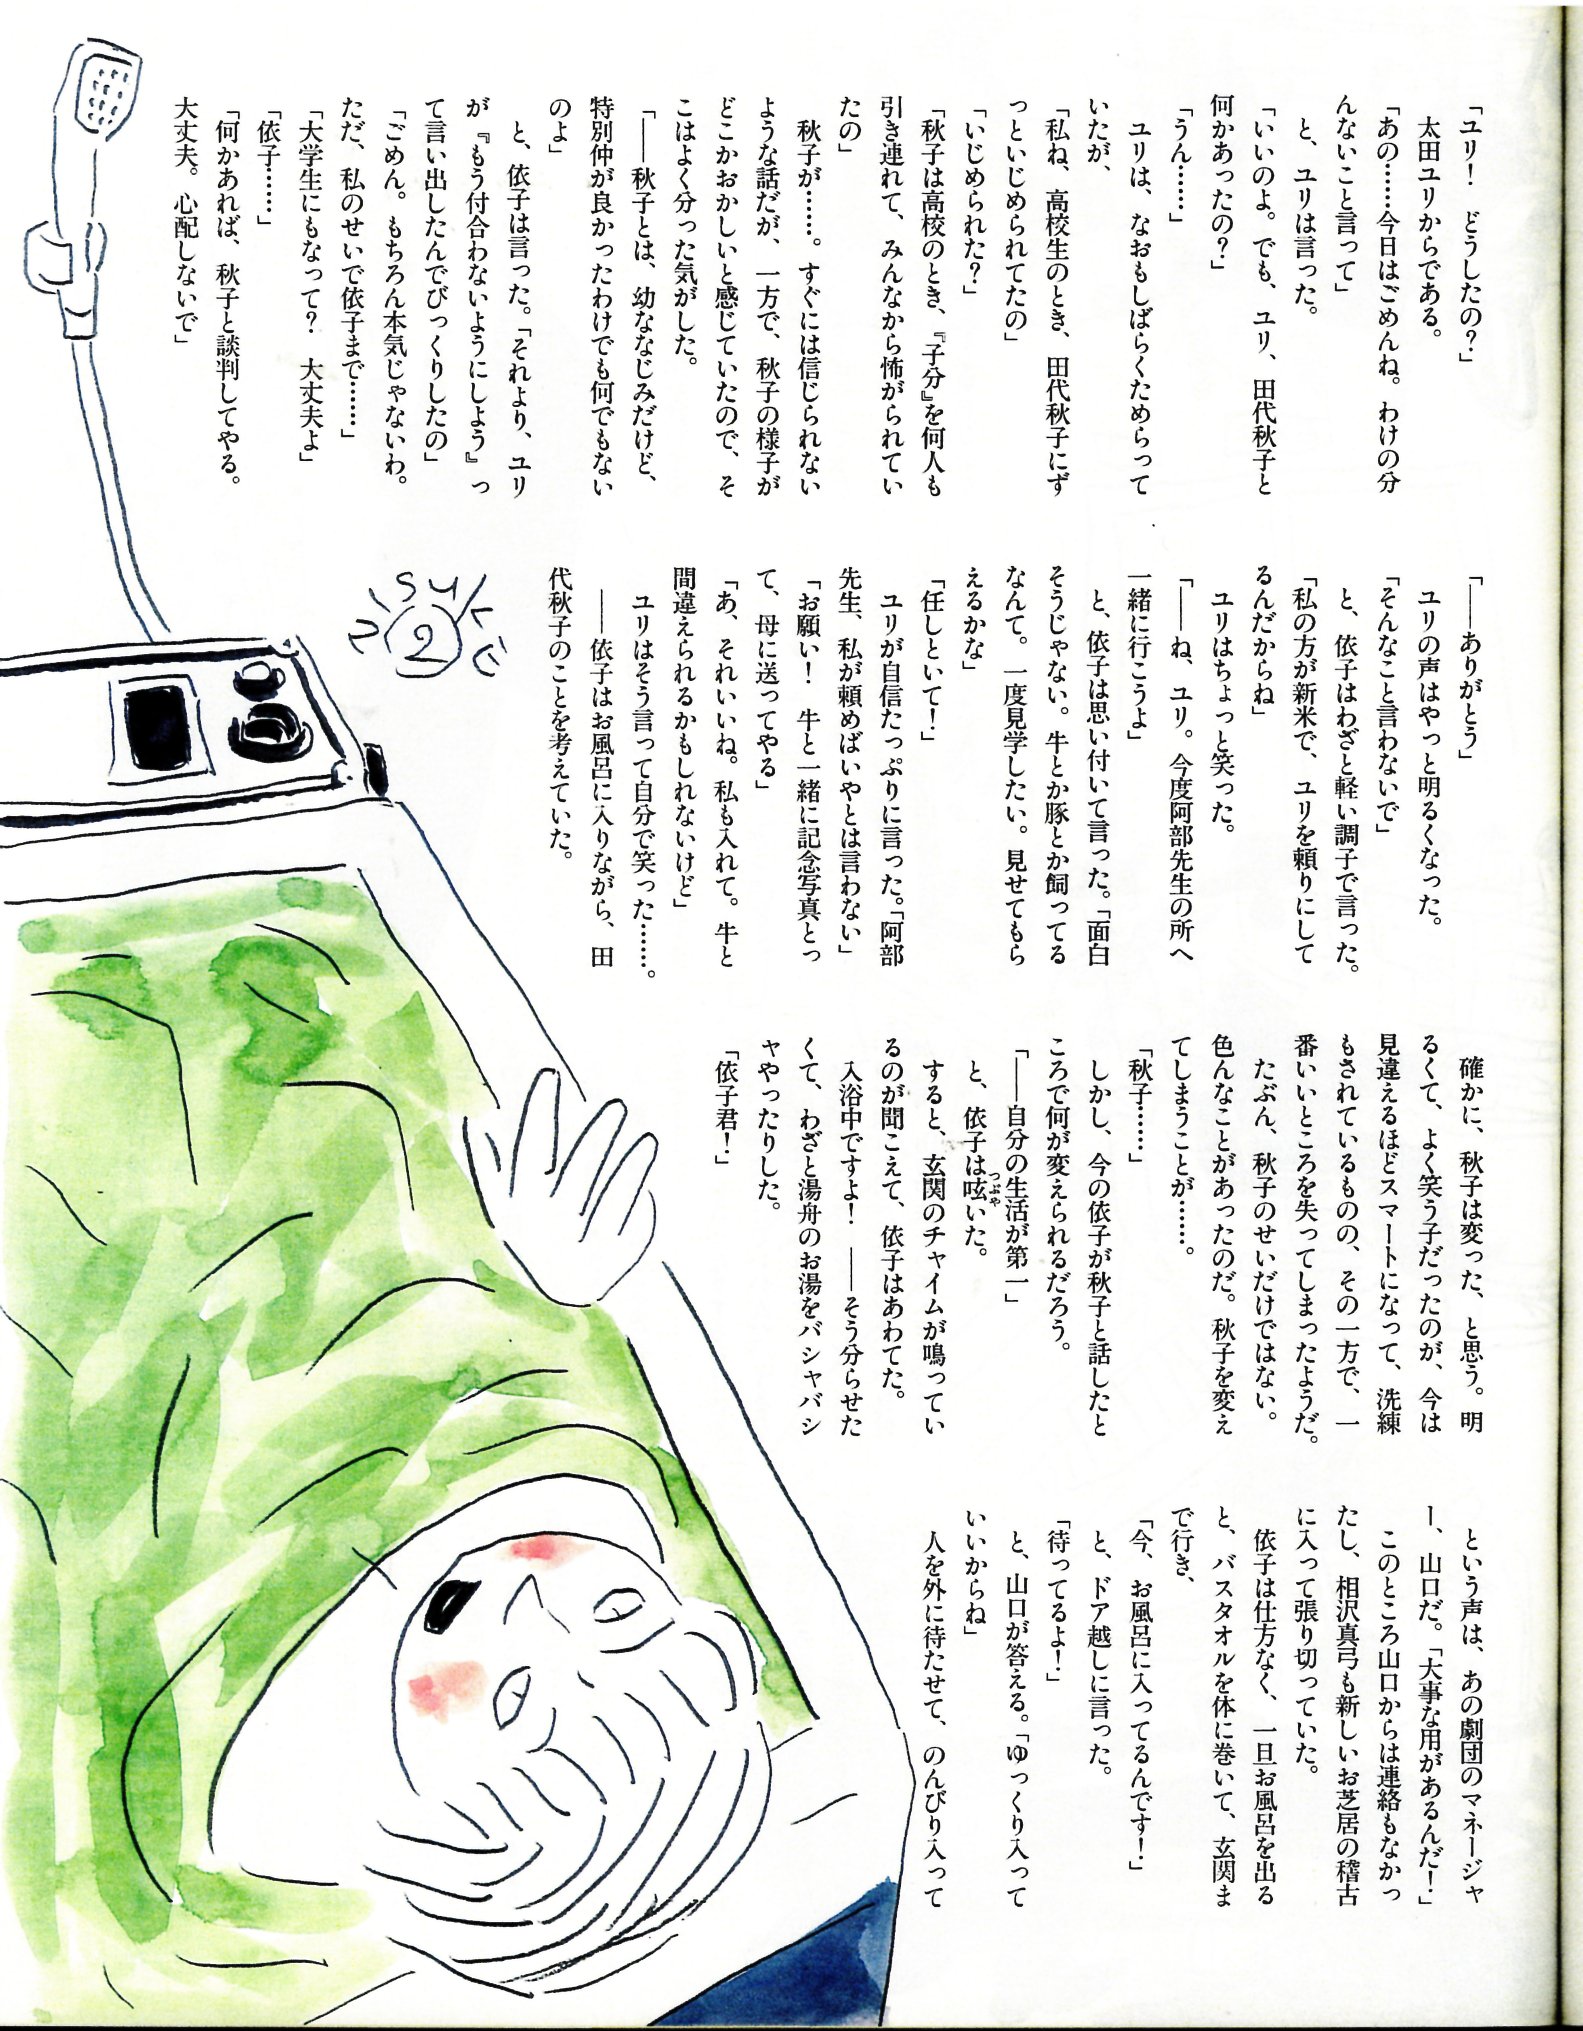 「ユリ！　どうしたの？」
　太田ユリからである。
「あの……今日はごめんね。わけの分
んないこと言って」
　と、ユリは言った。
「いいのよ。でも、ユリ、田代秋子と
何かあったの？」
「うん……」
　ユリは、なおもしばらくためらって
いたが、
「私ね、高校生のとき、田代秋子にず
っといじめられてたの」
「いじめられた？」
「秋子は高校のとき、『子分』を何人も
引き連れて、みんなから怖がられてい
たの」
　秋子が……。すぐには信じられない
ような話だが、一方で、秋子の様子が
どこかおかしいと感じていたので、そ
こはよく分った気がした。
「――秋子とは、幼ななじみだけど、
特別仲が良かったわけでも何でもない
のよ」
　と、依子は言った。「それより、ユリ
が『もう付合わないようにしよう』っ
て言い出したんでびっくりしたの」
「ごめん。もちろん本気じゃないわ。
ただ、私のせいで依子まで……」
「大学生にもなって？　大丈夫よ」
「依子……」
「何かあれば、秋子と談判してやる。
大丈夫。心配しないで」
「――ありがとう」
　ユリの声はやっと明るくなった。
「そんなこと言わないで」
　と、依子はわざと軽い調子で言った。
「私の方が新米で、ユリを頼りにして
るんだからね」
　ユリはちょっと笑った。
「――ね、ユリ。今度阿部先生の所へ
一緒に行こうよ」
　と、依子は思い付いて言った。「面白
そうじゃない。牛とか豚とか飼ってる
なんて。一度見学したい。見せてもら
えるかな」
「任しといて！」
　ユリが自信たっぷりに言った。「阿部
先生、私が頼めばいやとは言わない」
「お願い！　牛と一緒に記念写真とっ
て、母に送ってやる」
「あ、それいいね。私も入れて。牛と
間違えられるかもしれないけど」
　ユリはそう言って自分で笑った……。
　――依子はお風呂に入りながら、田
代秋子のことを考えていた。
　確かに、秋子は変った、と思う。明
るくて、よく笑う子だったのが、今は
見違えるほどスマートになって、洗練
もされているものの、その一方で、一
番いいところを失ってしまったようだ。
　たぶん、秋子のせいだけではない。
色んなことがあったのだ。秋子を変え
てしまうことが……。
「秋子……」
　しかし、今の依子が秋子と話したと
ころで何が変えられるだろう。
「――自分の生活が第一」
　と、依子は呟いた。
つぶや
　すると、玄関のチャイムが鳴ってい
るのが聞こえて、依子はあわてた。
　入浴中ですよ！　――そう分らせた
くて、わざと湯舟のお湯をバシャバシ
ャやったりした。
「依子君！」
　という声は、あの劇団のマネージャ
ー、山口だ。「大事な用があるんだ！」
　このところ山口からは連絡もなかっ
たし、相沢真弓も新しいお芝居の稽古
に入って張り切っていた。
　依子は仕方なく、一旦お風呂を出る
と、バスタオルを体に巻いて、玄関ま
で行き、
「今、お風呂に入ってるんです！」
　と、ドア越しに言った。
「待ってるよ！」
　と、山口が答える。「ゆっくり入って
いいからね」
　人を外に待たせて、のんびり入って